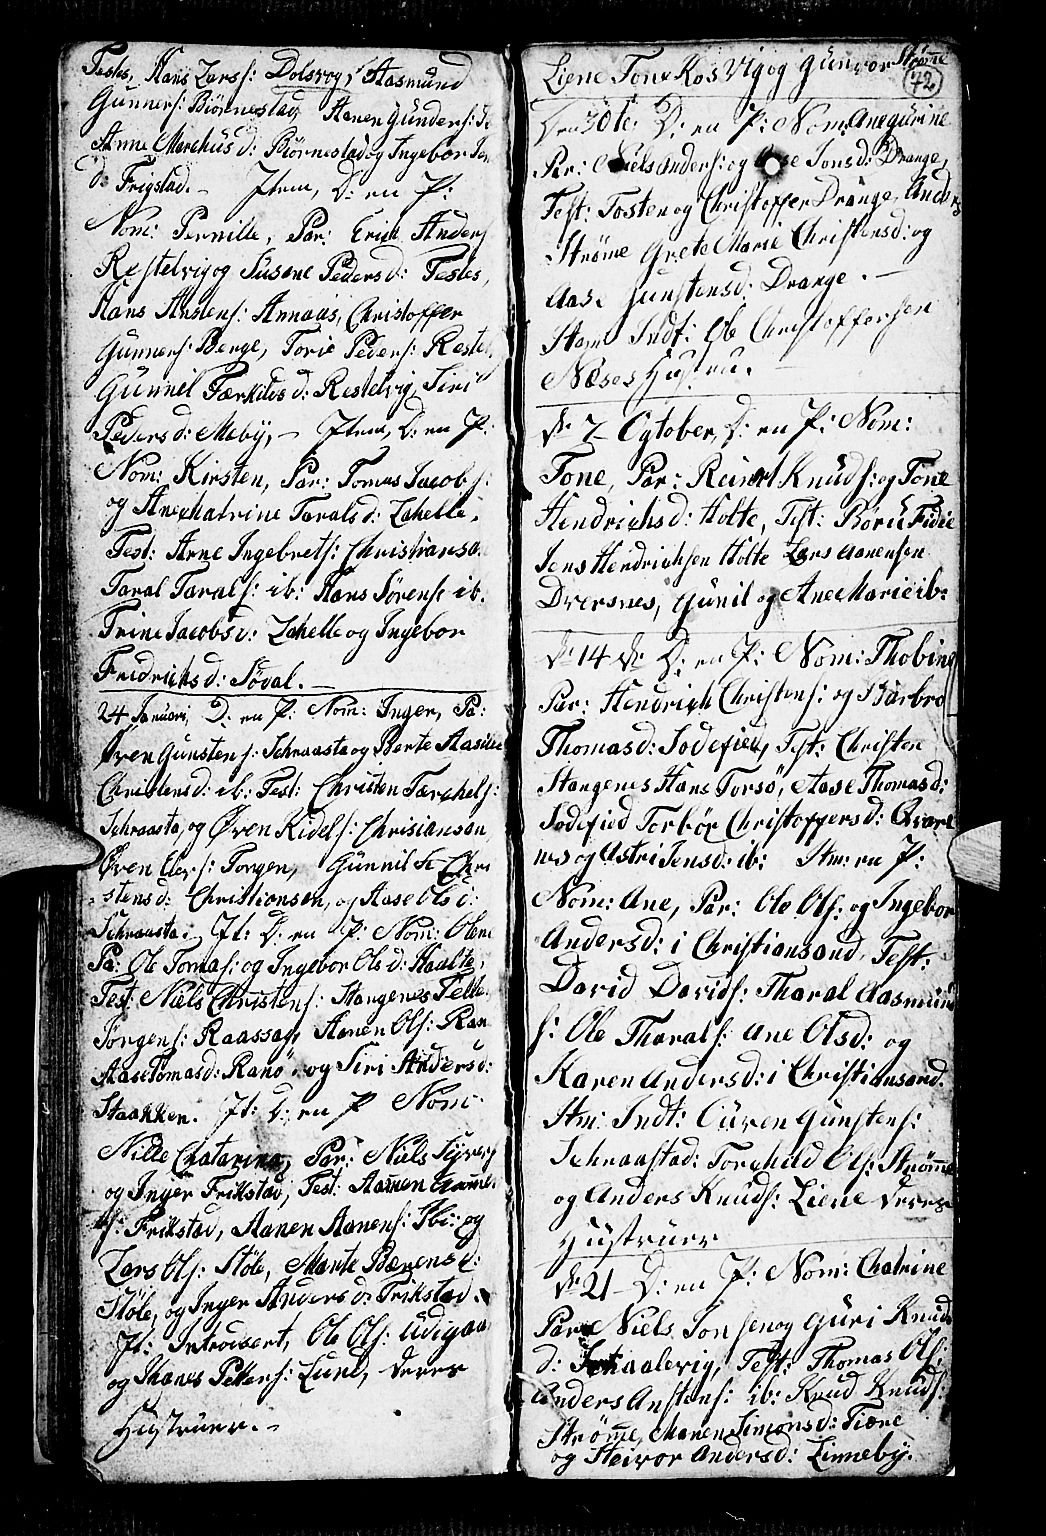 Testes, Hans Larss: Dolsvog, Aasmund
Gunners: Biørnestad, Aanen Gunders:
Anne Marchus d: Biørnestad og Ingebor
d: Frigstad. - Jtem, D: en P:
Nom: Pernille, Par: Erich Anders
Restelvig og Susane Peders d: Testes,
Hans Anstens: Annaas, Christoffer
Gunners: Berge, Torie Peders: Reste
Gunnil Tærkilds d: Restelvig, Siri
Peders d: Meby, - Jtem, D: en P:
Nom: Kirsten, Par: Tomas Jacobs:
og Anechatrine Tarals d: Zahelle.
Test: Arne Ingebrets: Christiansa
Taral Tarals: ib: Hans Sørens: ib.
Trine Jacobs d: Zahelle og Ingebor
Fredrichs d: Sødal. -
24 Januari, D: en P: Nom: Inger, Pa:
Øven Gunstens: Schraasta og Berte Aasille
Christens d: ib: Test: Christen Tærchels:
Schraasta, og Øven Kidels: Chrisiansan,
Øven Elers: Torgen, Gunnil Chri
stens d: Christiansan, og Aase Ols d:
Schraasta: Jt: D: en P: Nom: Olene
Pa: Ole Tomas: og Ingebor Ols d: Haalte,
Test: Niels Christens: Stangenes Telle
Jørgens: Raassag, Aanen Ols: Ran
Aase Tomas d: Ranø, og Siri Anders d:
Staakken. Jt: D: en P Nom:
Nille Catarina, Par: Niels Siyvers
og Inger Frikstad, Test: Aanen
s: Frikstad, Aanen Aanens: Ibi: og
Lars Ols: Støle, Marte Bærens d:
Støle, og Inger Anders d: Frikstad.
Jt: Introdsert, Ole Ols: Udigaa
og Hanes Pettens: Lund, deres
Hustruer. -
Liene Tone Kos Vig og Gunvor Strømme
72
Den 30te: D: en P: Nom: Ane Gurine
Par: Niels Anders: og Aase Jons d: Drange,
Test: Tosten og Christoffer Drange, Anders
Strøme Grete Marie Christens d: og
Aase Gunstens d: Drange. -
Item Indt: Ole Christoffersen
Næses Hustru.
dn 7 Ogtober, D: en P: Nom:
Tone, Par: Reinert Knuds: og Tone
Hendrichs d: Holte, Test: Børu Fidie
Jens Hendrichsen Holte Lars Aanensen
Dversnes, Gunil og Ane Marie ib:
dn 14 de D: en P: Nom: Thobine
Par: Hendrich Christens: og Barbro
Thomas d: Sodefied, Test: Christen
Stangenes Hans Torsö, Aase Thomas d:
Sodefied Torbör Christoffers d: Qvare
nes og Astri Jens d: ib: Itm: en P:
Nom: Ane, Par: Ole Ols: og Ingebor
Anders d: i Christiansand, Test:
David Davids: Tharal Aasmun
s: Ole Tharals: Ane Ols d: og
Karen Anders d: i Christiansand.
Itm: Indt: Ouven Gunstens:
Schraastad: Torchild Ols: Strømme
og Anders Knuds: Liene deres
Hustruer
dn 21 - D: en P: Nom: Chatrine
Par: Niels Jonsen og Guri Knud
d: Test: Thomas Ols:
Anders Anstens: ib: Knud Knuds:
Strømme, Maren Simons d: Tiære
og Heivor Anders d: Linneby.